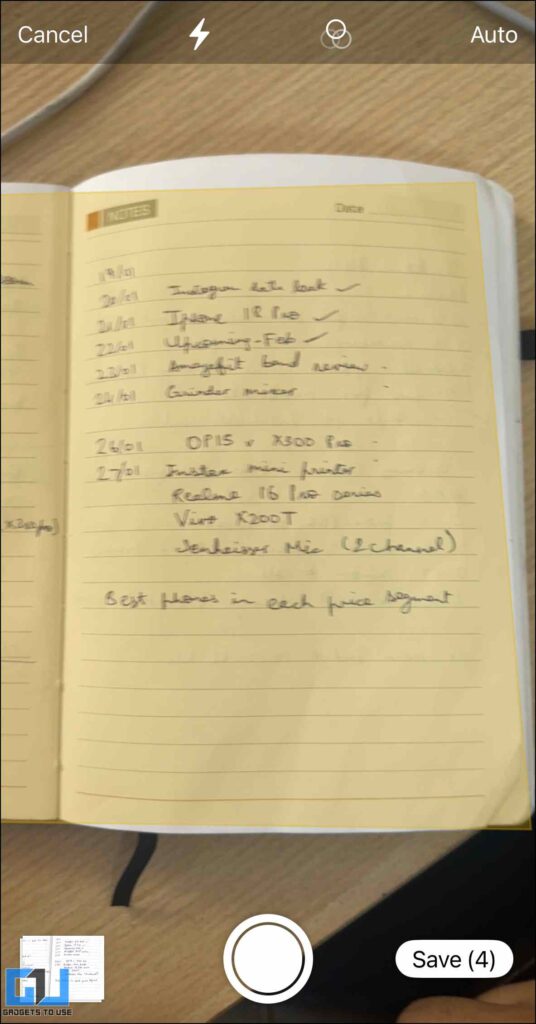 Cancel
Auto
NOTES
Date
19/01
20/01 Instagram data leak ✓
21/01 Iphone 18 Pro ✓
22/01 Upcoming-Feb ✓
23/01 Amazefit band review -
24/01 Grinder mixer -
26/01 OP15 v X300 Pro -
27/01 Instax mini printer
Realme 16 Pro series
Vivo X200T
Senheisser Mic (2 channel)
Best phones in each price segment
Save (4)
GADGETS TO USE